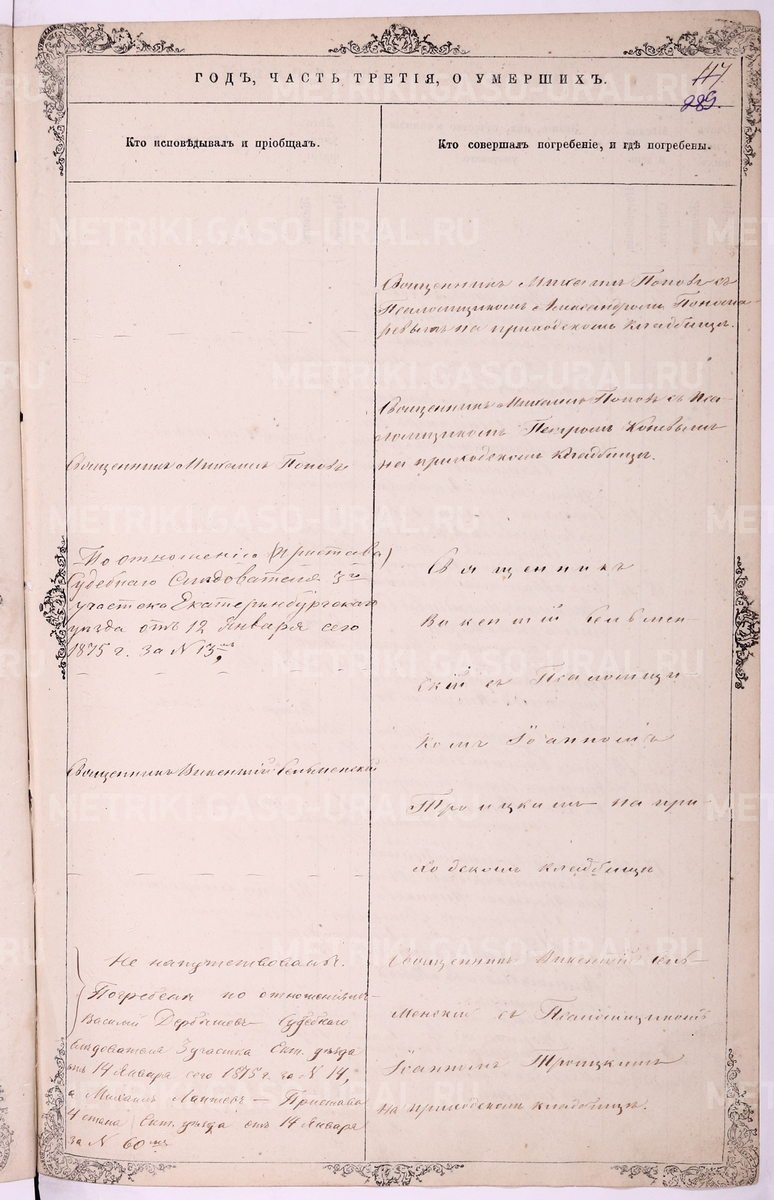 ГОДЪ, ЧАСТЬ ТРЕТІЯ, О УМЕРШИХЪ.
117
289.
Кто исповѣдывалъ и пріобщалъ.
Кто совершалъ погребеніе, и гдѣ погребены.
Священникъ Михаилъ Поповъ съ
Псаломщикомъ Александромъ Понома
ревымъ на приходскомъ кладбищѣ.
Священникъ Михаилъ Поповъ съ Пса-
ломщикомъ Петромъ
на приходскомъ кладбищѣ.
Священникъ Михаилъ Поповъ
По отношенію (Пристава)
Судебнаго Слѣдователя 3го
участока Екатеринбургскаго
уѣзда отъ 12 Января сего
1875 г. за № 13,
Священникъ
Викентій
скій съ Псаломщи-
комъ Іоанномъ
Троицкимъ на при-
ходскомъ кладбищѣ
Священникъ Викентій
Не напутствованъ.
Погребены по отношеніямъ
Василій Судебнаго
Слѣдователя 3 участка Екат. уѣзда
отъ 14 Января сего 1875 г. за № 14,
а Михаилъ — Пристава
4 стана Екат. уѣзда отъ 14 Января
за № 60мъ
Священникъ Викентій
менскій съ Псаломщикомъ
Іоанномъ Троицкимъ
на приходскомъ кладбищѣ.
METRIKI.GASO-URAL.RU